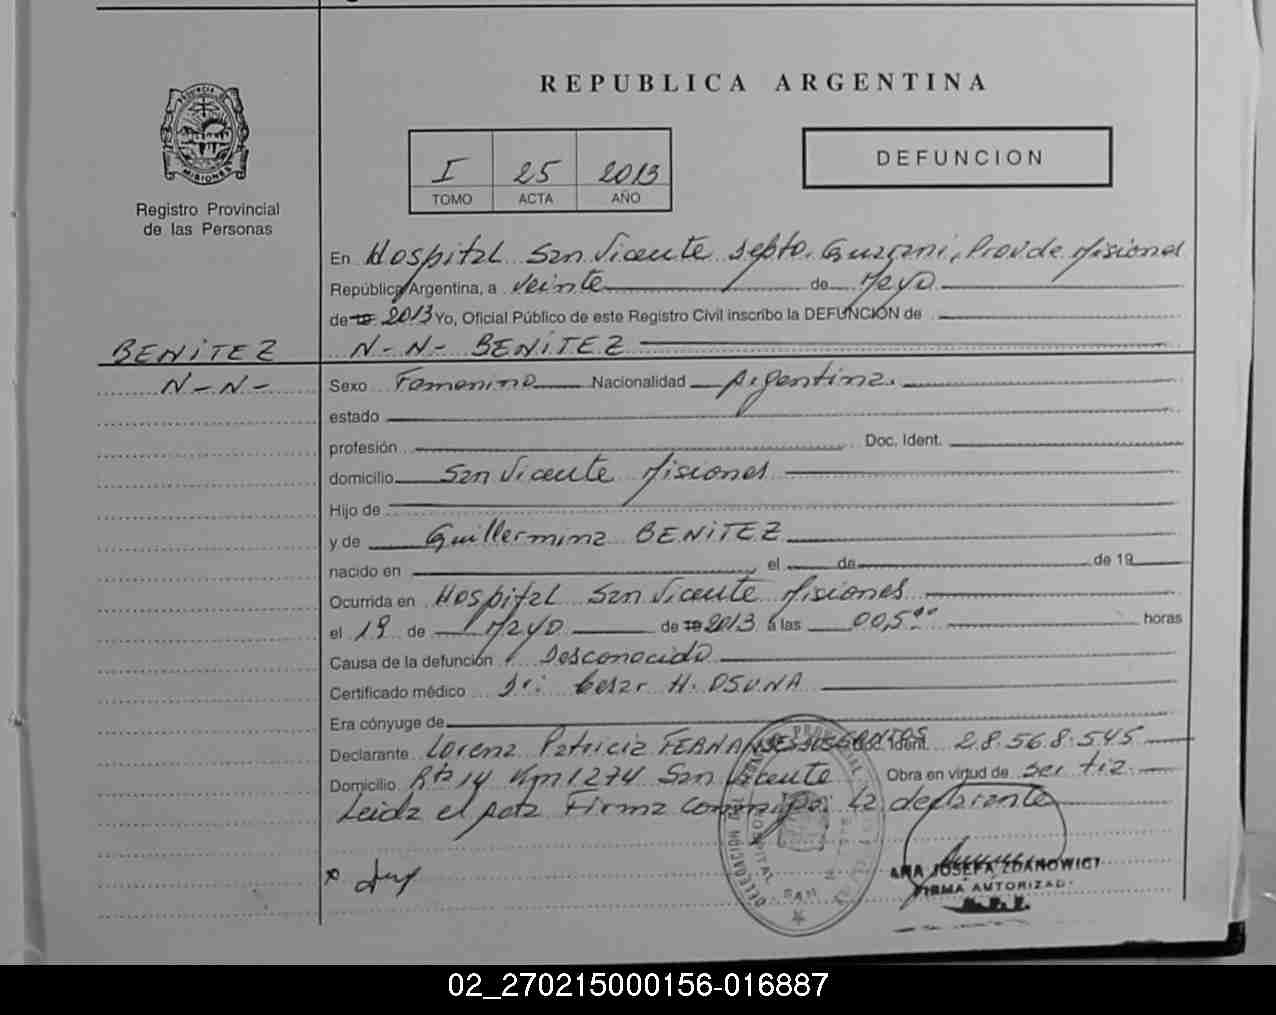 REPUBLICA ARGENTINA
PROVINCIA DE
MISIONES
Registro Provincial
de las Personas
I 25 2013
TOMO ACTA AÑO
DEFUNCION
En Hospital San Vicente Depto. Guaraní, Prov de Misiones
República Argentina, a Veinte de Mayo
de 2013 Yo, Oficial Público de este Registro Civil inscribo la DEFUNCION de
BENITEZ N-N- BENITEZ
N-N- Sexo Femenino Nacionalidad Argentina.
estado
profesión Doc. Ident.
domicilio San Vicente Misiones
Hijo de
y de Guillermina BENITEZ
nacido en el de de 19
Ocurrida en Hospital San Vicente Misiones
el 19 de Mayo de 2013 a las horas
Causa de la defunción Desconocido
Certificado médico Dr: Cesar H. OSUNA
Era cónyuge de
Declarante Lorena Patricia Doc. Ident. 28.568.545
Domicilio Rta 14 Km 1274 San Vicente Obra en virtud de ser tia
Leida el Acta Firma conmigo la declarante
x
ANA JOSEFA ZDANOWICZ
FIRMA AUTORIZADA
02_270215000156-016887